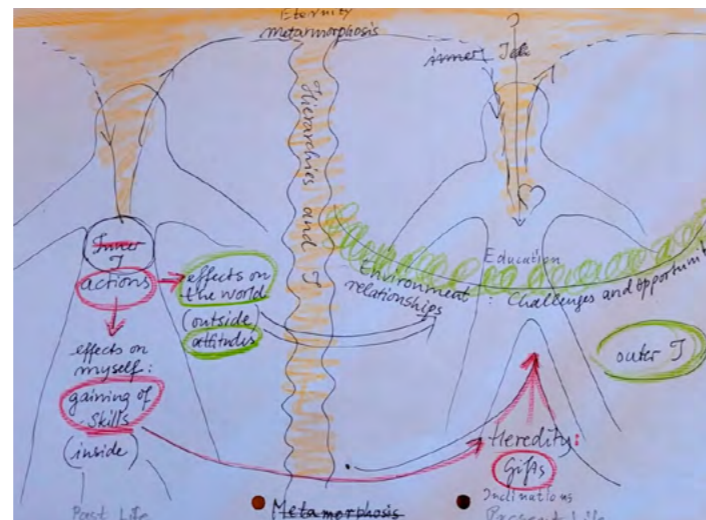 Eternity
metamorphosis
inner I
Hierarchies and I
Inner
I
actions
effects on
the world
(outside)
attitudes
effects on
myself:
gaining of
skills
(inside)
Past Life
Metamorphosis
Education
Environment : Challenges and opportunit
relationships
outer I
Heredity:
Gifts
Inclinations
Present Life